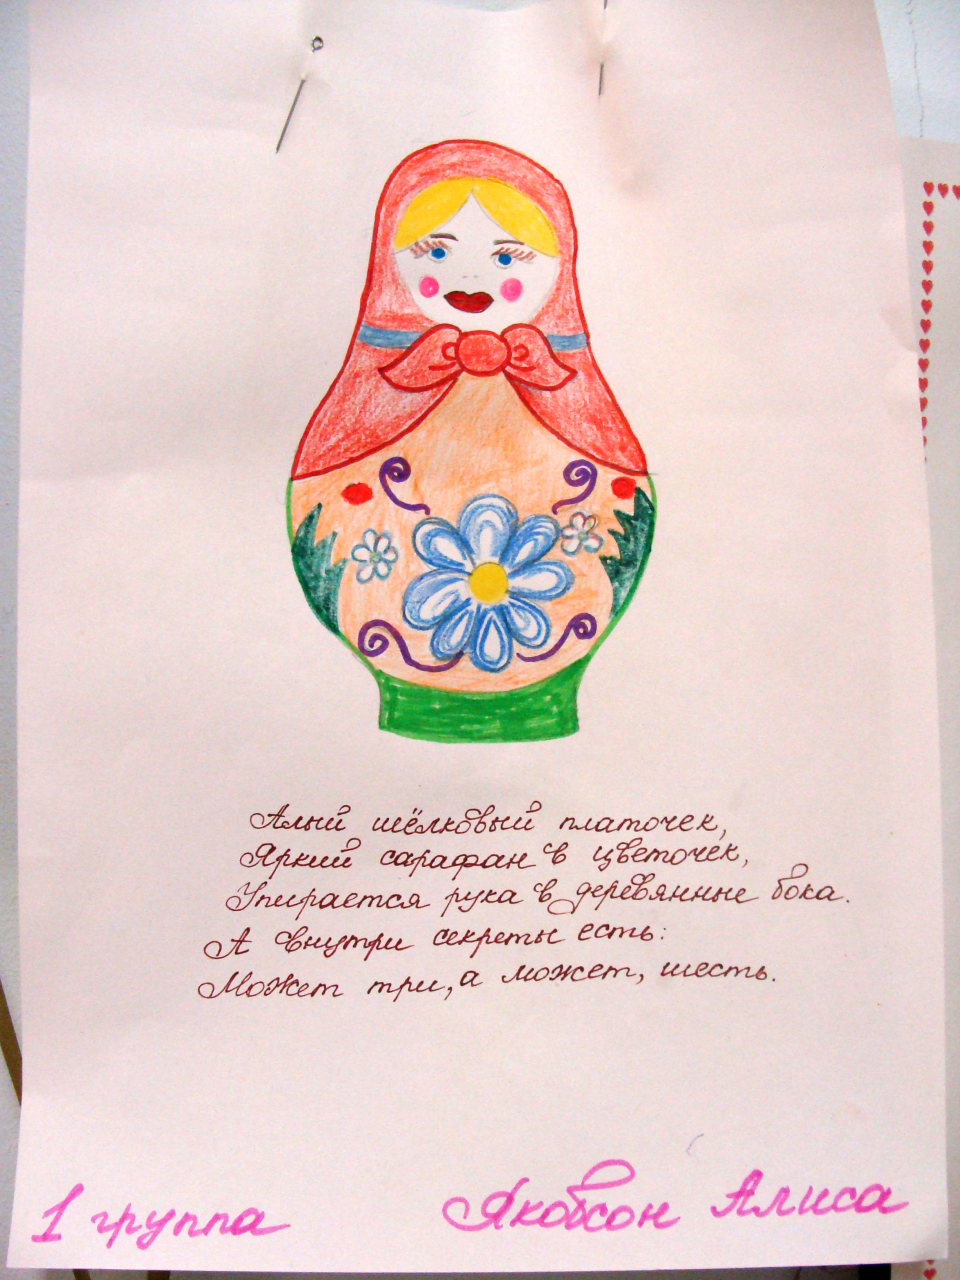 Алый шёлковый платочек,
Яркий сарафан в цветочек,
Упирается рука в деревянные бока.
А внутри секреты есть:
Может три, а может, шесть.
1 группа Якобсон Алиса